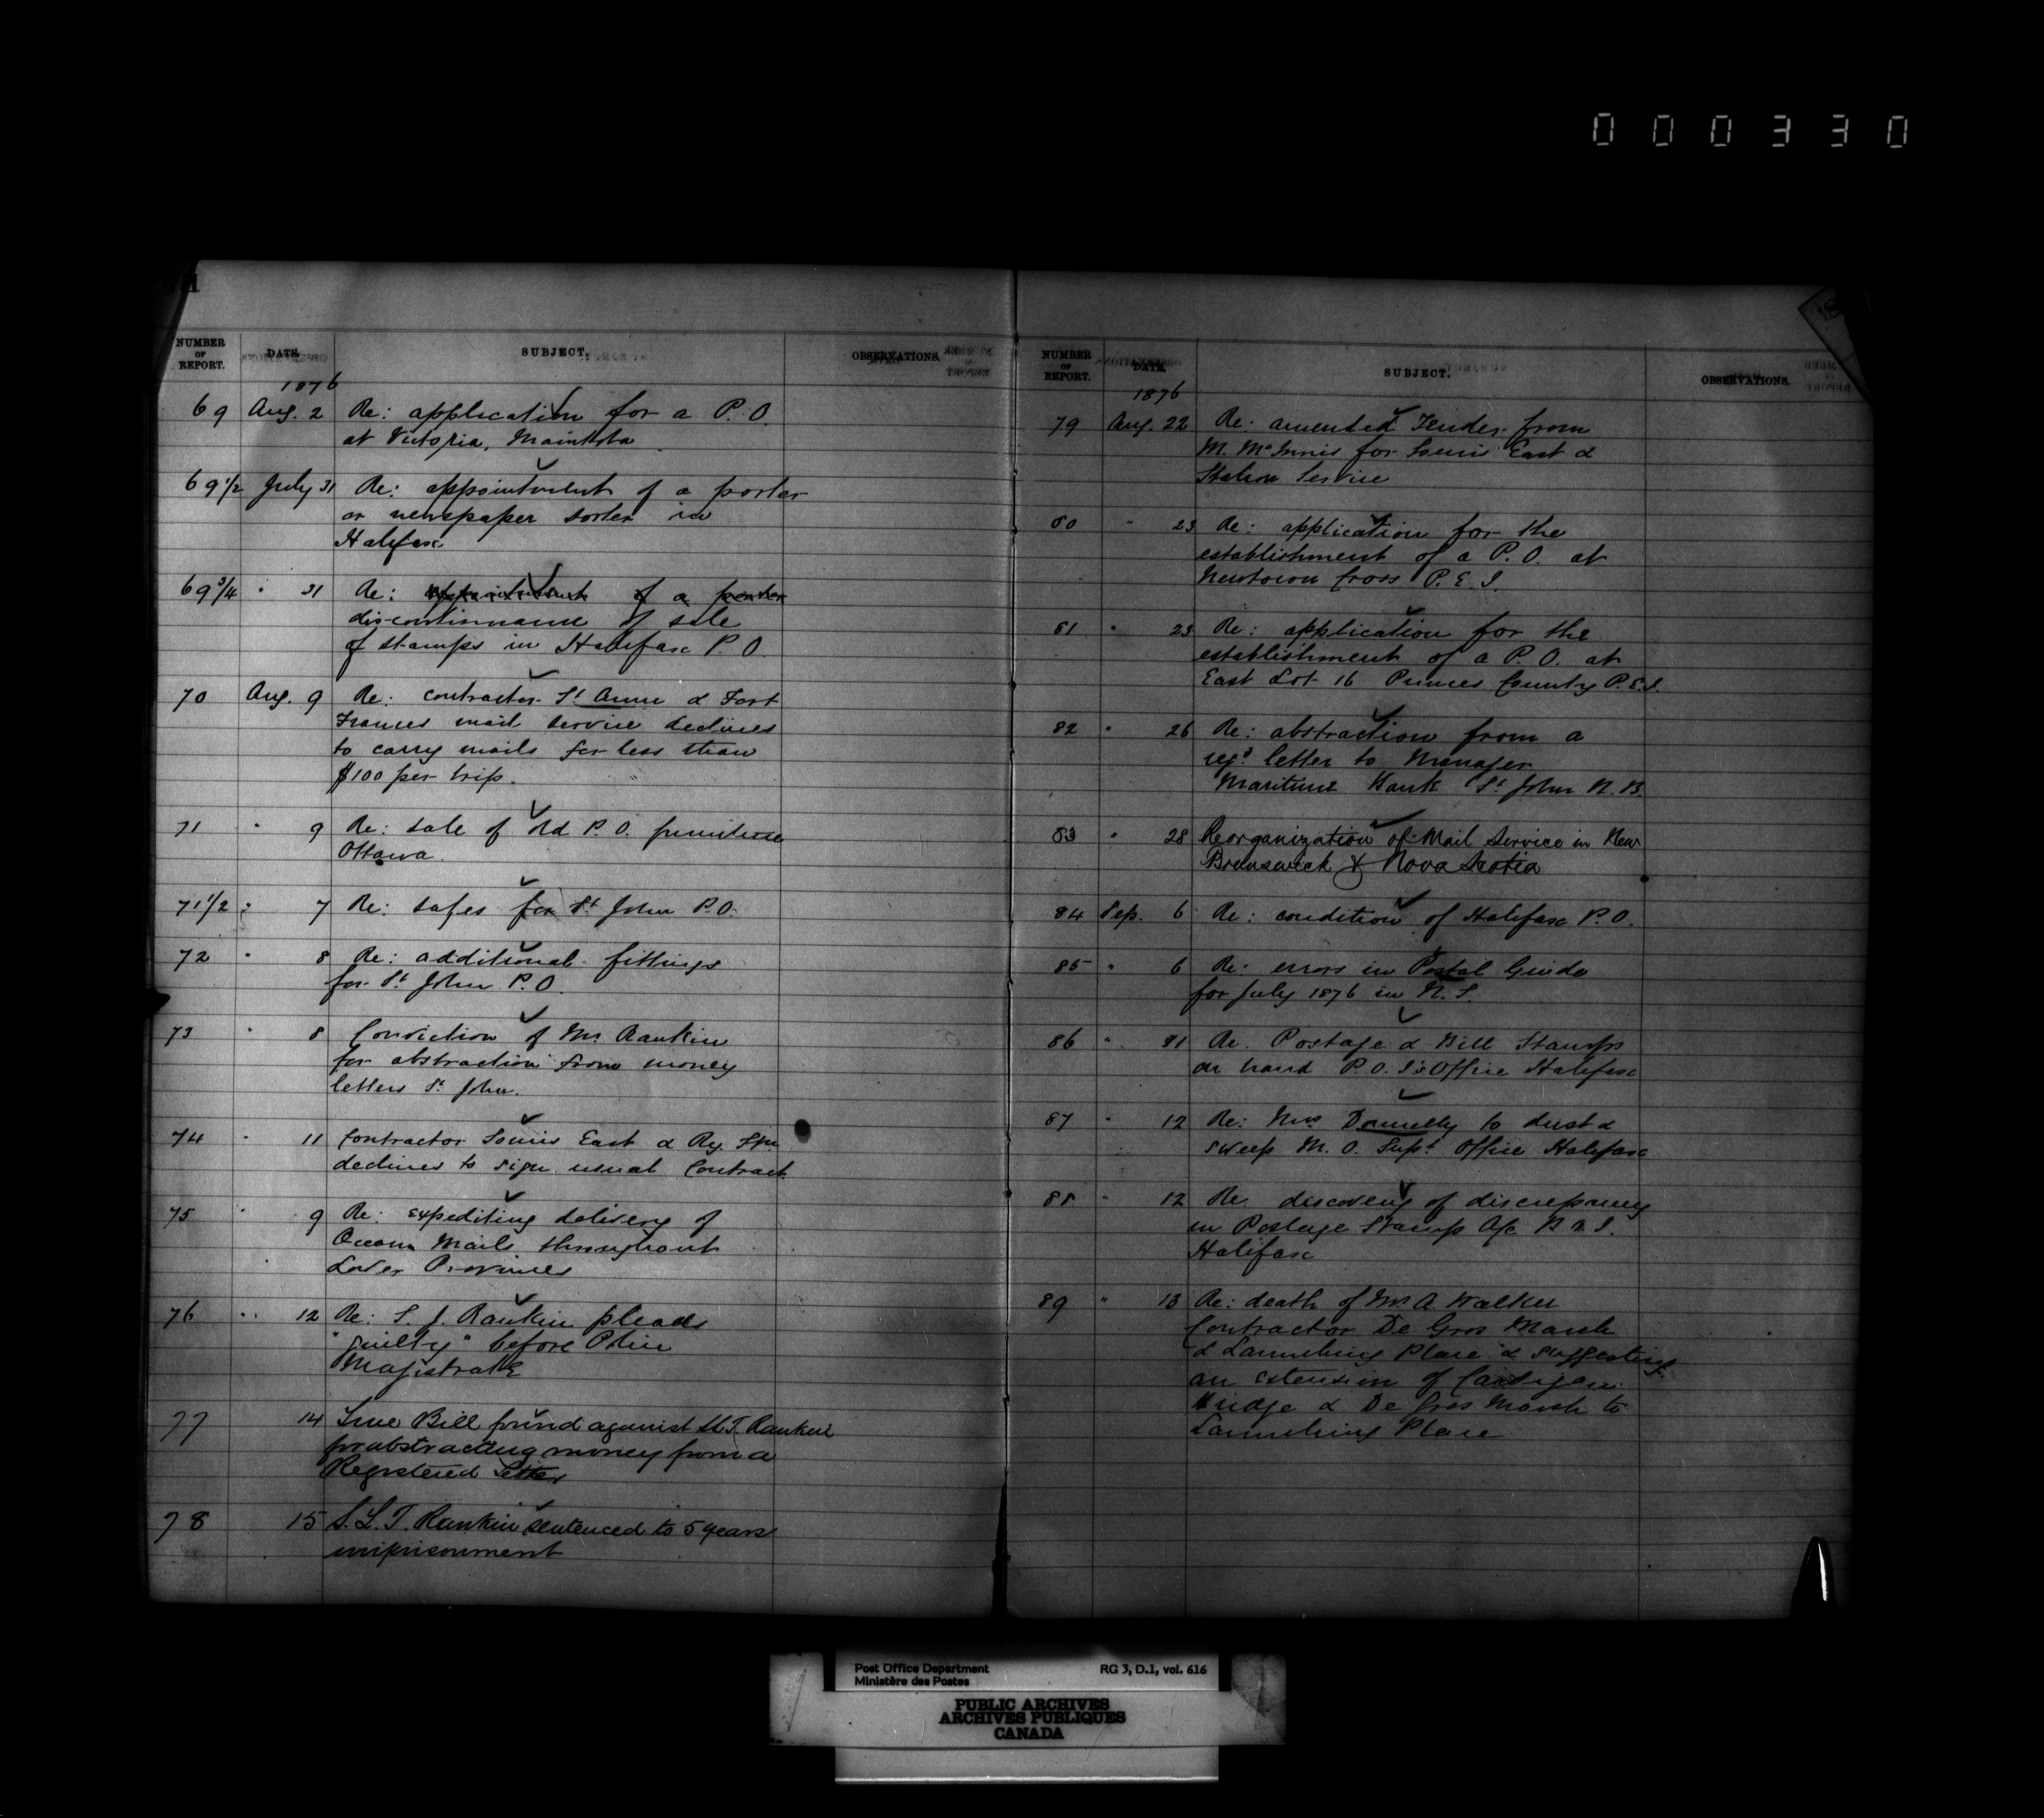 000330
NUMBER OF REPORT. DATE. SUBJECT. OBSERVATIONS.
1876
69 Aug. 2 Re: application for a P. O.
at Victoria, Manitoba
69 1/2 July 31 Re: appointment of a porter
or newspaper sorter in
Halifax
69 3/4 " 31 Re: appointment of a porter
discontinuance of sale
of stamps in Halifax P. O.
70 Aug. 9 Re: contractor St Anne & Fort
Frances mail service declines
to carry mails for less than
$100 per trip.
71 " 9 Re: sale of old P. O. furniture
Ottawa.
71 1/2 : 7 Re: safes for St John P.O.
72 " 8 Re: additional fittings
for St John P.O.
73 " 8 Conviction of Mr Rankin
for abstraction from money
letters St John.
74 " 11 Contractor Souris East & Ry. Stn.
declines to sign usual Contract.
75 " 9 Re: expediting delivery of
Ocean Mails throughout
Lower Provinces
76 " 12 Re: S. J. Rankin pleads
"guilty" before Police
Magistrate
77 14 True Bill found against Rankin
for abstracting money from a
Registered Letter
78 15 S. L. T. Rankin sentenced to 5 years
imprisonment
NUMBER OF REPORT. DATE. SUBJECT. OBSERVATIONS.
1876
79 Aug. 22 Re: amended Tender from
M. McInnis for Souris East &
Station Service
80 " 23 Re: application for the
establishment of a P. O. at
Newtown Cross P. E. I.
81 " 23 Re: application for the
establishment of a P. O. at
East Lot 16 Princes County P.E.I.
82 " 26 Re: abstraction from a
regd letter to Manager
Maritime Bank St John N. B.
83 " 28 Reorganization of Mail Service in New
Brunswick & Nova Scotia
84 Sep. 6 Re: condition of Halifax P. O.
85 " 6 Re: errors in Postal Guide
for July 1876 in N. S.
86 " 11 Re. Postage & Bill Stamps
on hand P. O. I's Office Halifax
87 " 12 Re: Mrs Donnelly to dust &
sweep M. O. Supt Office Halifax
88 " 12 Re discovery of discrepancy
in Postage Stamp a/c
Halifax
89 " 13 Re: death of Mr. A. Walker
Contractor De Gros Marsh
& Launching Place & suggesting
an extension of Cardigan
Bridge & De Gros Marsh to
Launching Place
Post Office Department RG 3, D.1, vol. 616
Ministère des Postes
PUBLIC ARCHIVES
ARCHIVES PUBLIQUES
CANADA